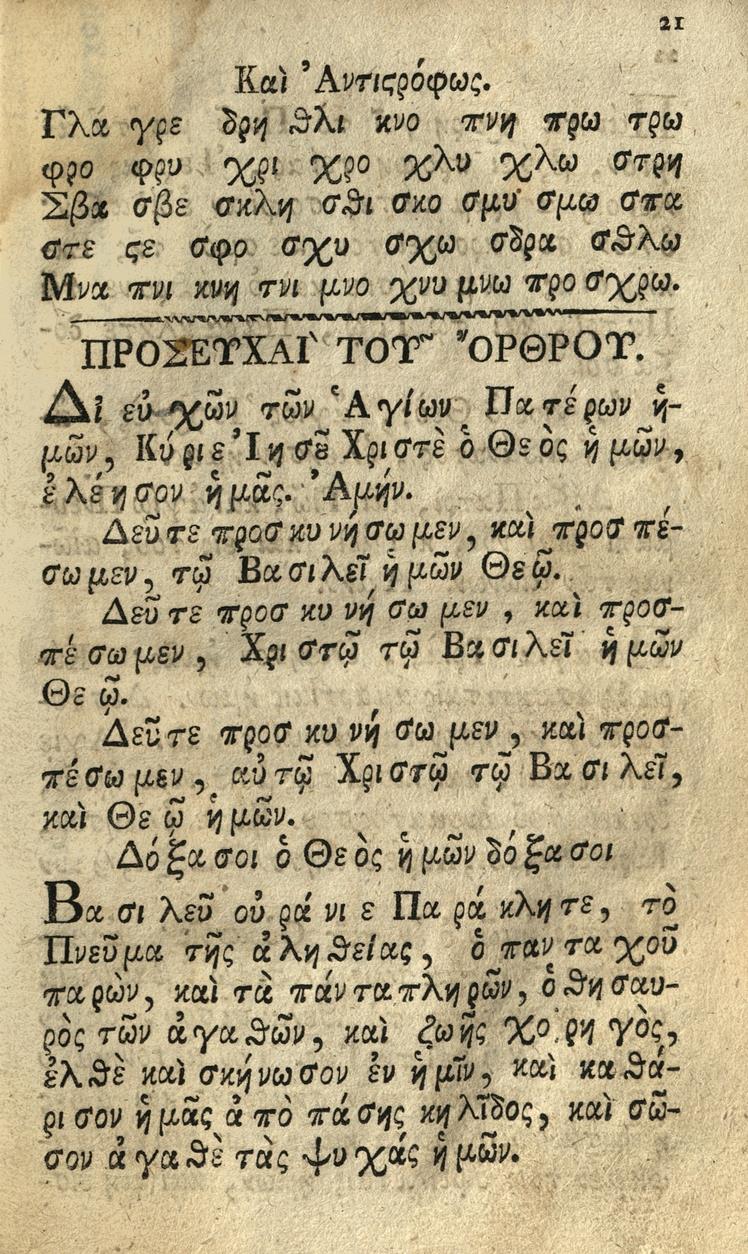 21
Καὶ Ἀντιϛρόφως.
Γλα γρε δρη ϑλι κνο πνη πρω τρω
φρο φρυ χρι χρο χλυ χλω στρη
Σβα σβε σκλη σϑι σκο σμυ σμω σπα
στε ϛε σφο σχυ σχω σδρα σϑλω
Μνα πνι κνη τνι μνο χνυ μνω προ σχρω.
ΠΡΟΣΕΥΧΑΙ` ΤΟΥ῀ ῎ΟΡΘΡΟΥ.
Δἰ εὐ χῶν τῶν Ἁ γίων Πα τέ ρων ἡ-
μῶν, Κύ ριε Ἰ η σȣ͂ Χρι στὲ ὁ Θε ὸς ἡ μῶν,
ἐ λέ η σον ἡ μᾶς. Ἀμήν.
Δεῦ τε προσ κυ νή σω μεν, καὶ προσ πέ-
σω μεν, τῷ Βα σι λεῖ ἡ μῶν Θε ῷ.
Δεῦ τε προσ κυ νή σω μεν , καὶ προσ-
πέ σω μεν , Χρι στῷ τῷ Βα σι λεῖ ἡ μῶν
Θε ῷ.
Δεῦ τε προσ κυ νή σω μεν , καὶ προσ-
πέ σω μεν , αὐ τῷ Χρι στῷ τῷ Βα σι λεῖ,
καὶ Θε ῷ ἡ μῶν.
Δό ξα σοι ὁ Θε ὸς ἡ μῶν δό ξα σοι
Βα σι λεῦ οὐ ρά νι ε Πα ρά κλη τε, τὸ
Πνεῦ μα τῆς ἀ λη ϑείας , ὁ παν τα χοῦ
πα ρὼν, καὶ τὰ πάν τα πλη ρῶν, ὁ ϑη σαυ-
ρὸς τῶν ἀ γα ϑῶν, καὶ ζω ῆς χο ρη γὸς,
ἐλ ϑὲ καὶ σκή νω σον ἐν ἡ μῖν, καὶ κα ϑά-
ρι σον ἡ μᾶς ἀ πὸ πά σης κη λῖδος, καὶ σῶ-
σον ἀ γα ϑὲ τὰς ψυ χάς ἡ μῶν.